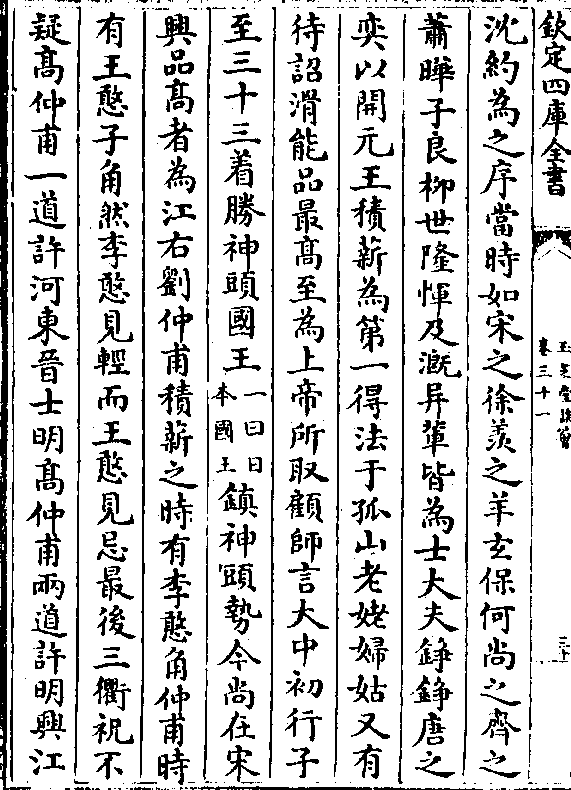 欽定四庫全書
卷三十一
三十
沈約為之序當時如宋之徐羨之羊玄保何尚之齊之
蕭曄子良柳世隆惲及溉昇輩皆為士大夫錚錚唐之
奕以開元王積薪為第一得法于孤山老姥婦姑又有
待詔滑能品最髙至為上帝所取顧師言大中初行子
至三十三着勝神頭國王一曰日本國王鎮神頭勢今尚在宋
興品髙者為江右劉仲甫積薪之時有李憨角仲甫時
有王憨子角然李憨見輕而王憨見忌最後三衢祝不
疑髙仲甫一道許河東晉士明髙仲甫兩道許明興江